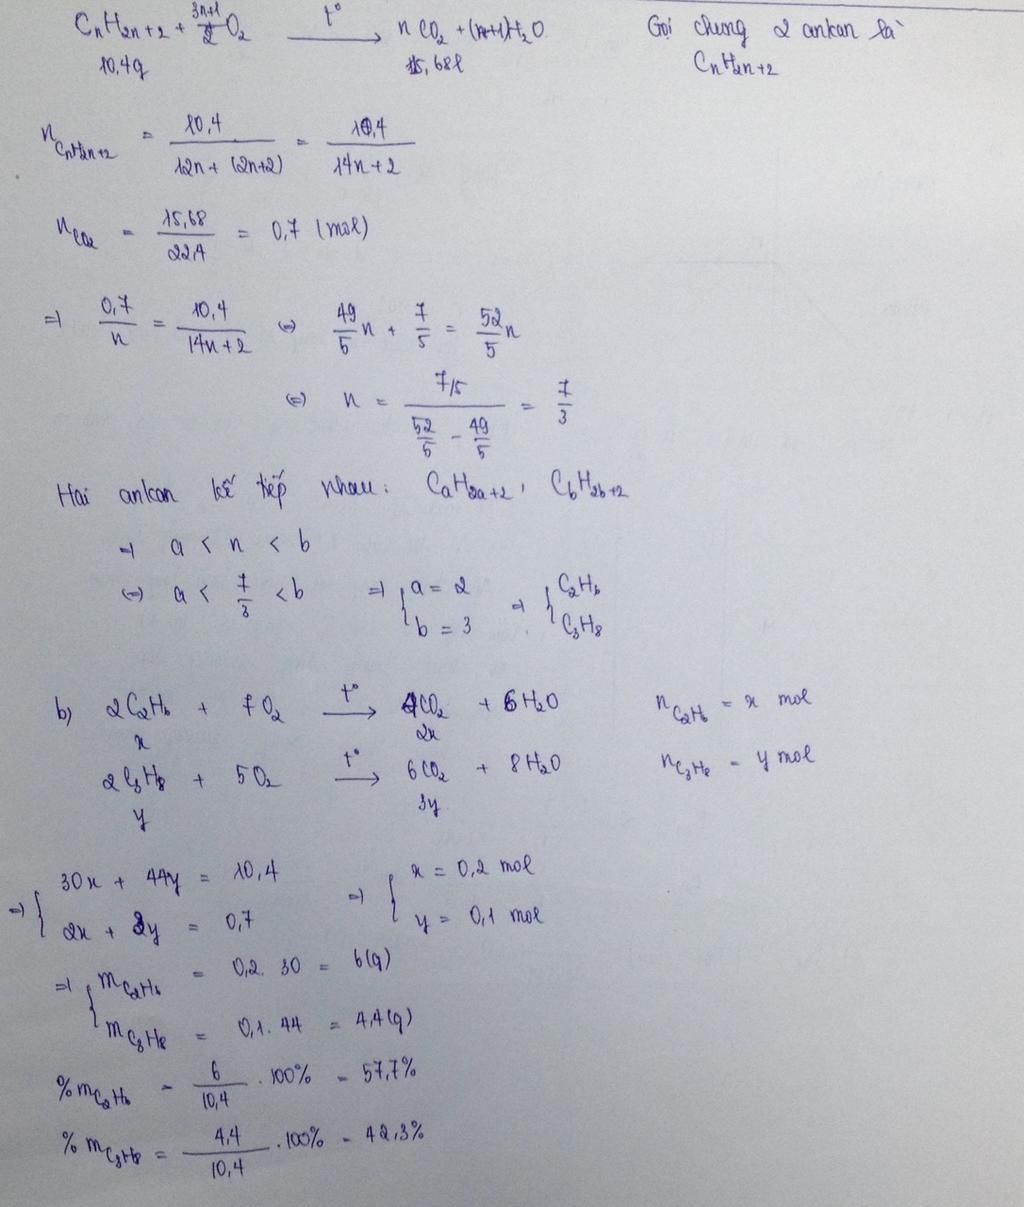 CnH2n+2 + 3n+1/2 O2 →(t°) nCO2 + (n+1)H2O Gọi chung 2 ankan là
10,4g 15,68l CnH2n+2
nCnH2n+2 = 10,4/(12n + (2n+2)) = 10,4/(14n+2)
nCO2 = 15,68/22,4 = 0,7 (mol)
⇒ 0,7/n = 10,4/(14n+2) ⇔ 49/5 n + 7/5 = 52/5 n
⇔ n = (7/5)/(52/5 - 49/5) = 7/3
Hai ankan kế tiếp nhau: CaH2a+2, CbH2b+2
⇒ a < n < b
⇔ a < 7/3 < b ⇒ { a = 2 b = 3 ⇒ { C2H6 C3H8
b) 2C2H6 + 7O2 →(t°) 4CO2 + 6H2O nC2H6 = x mol
x 2x
2C3H8 + 5O2 →(t°) 6CO2 + 8H2O nC3H8 = y mol
y 3y
⇒ { 30x + 44y = 10,4 ⇒ { x = 0,2 mol
2x + 3y = 0,7 y = 0,1 mol
⇒ { mC2H6 = 0,2. 30 = 6(g)
mC3H8 = 0,1. 44 = 4,4(g)
%mC2H6 = 6/10,4 . 100% = 57,7%
%mC3H8 = 4,4/10,4 . 100% = 42,3%